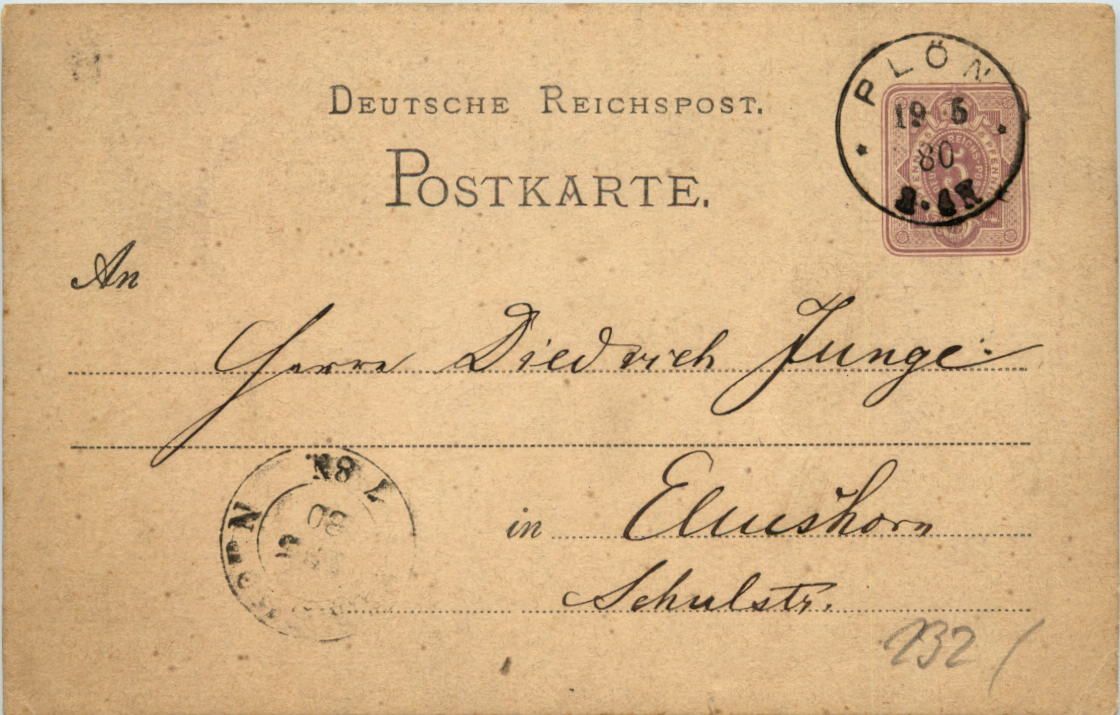 DEUTSCHE REICHSPOST.
POSTKARTE.
PLÖN
19 5
80
An
Herrn Diedrich Junge.
in Elmshorn
Schulstr.
7 8N
80
232